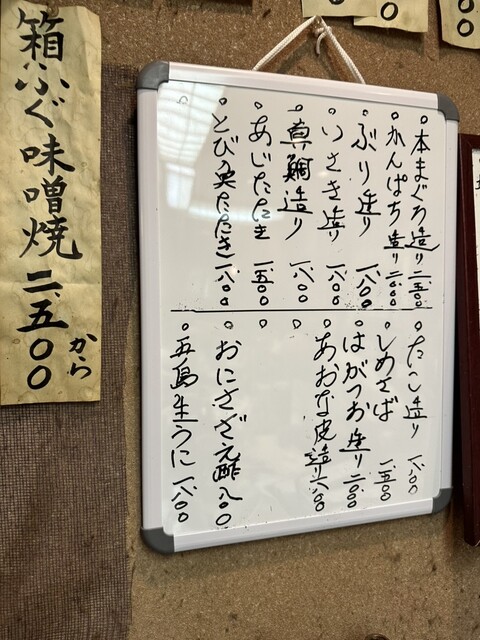 本まぐろ造り 二.五〇〇
かんぱち造り 二.〇〇〇
ぶり造り 一.八〇〇
いさき造り 一.八〇〇
真鯛造り 一.八〇〇
あじたたき 一.五〇〇
とび魚たたき 一.八〇〇
たこ造り 一.八〇〇
しめさば 一.五〇〇
はがつお造り 二.〇〇〇
あおな皮造り
おにさざえ酢 八〇〇
五島生うに 一.八〇〇
箱ふぐ味噌焼 二、五〇〇から